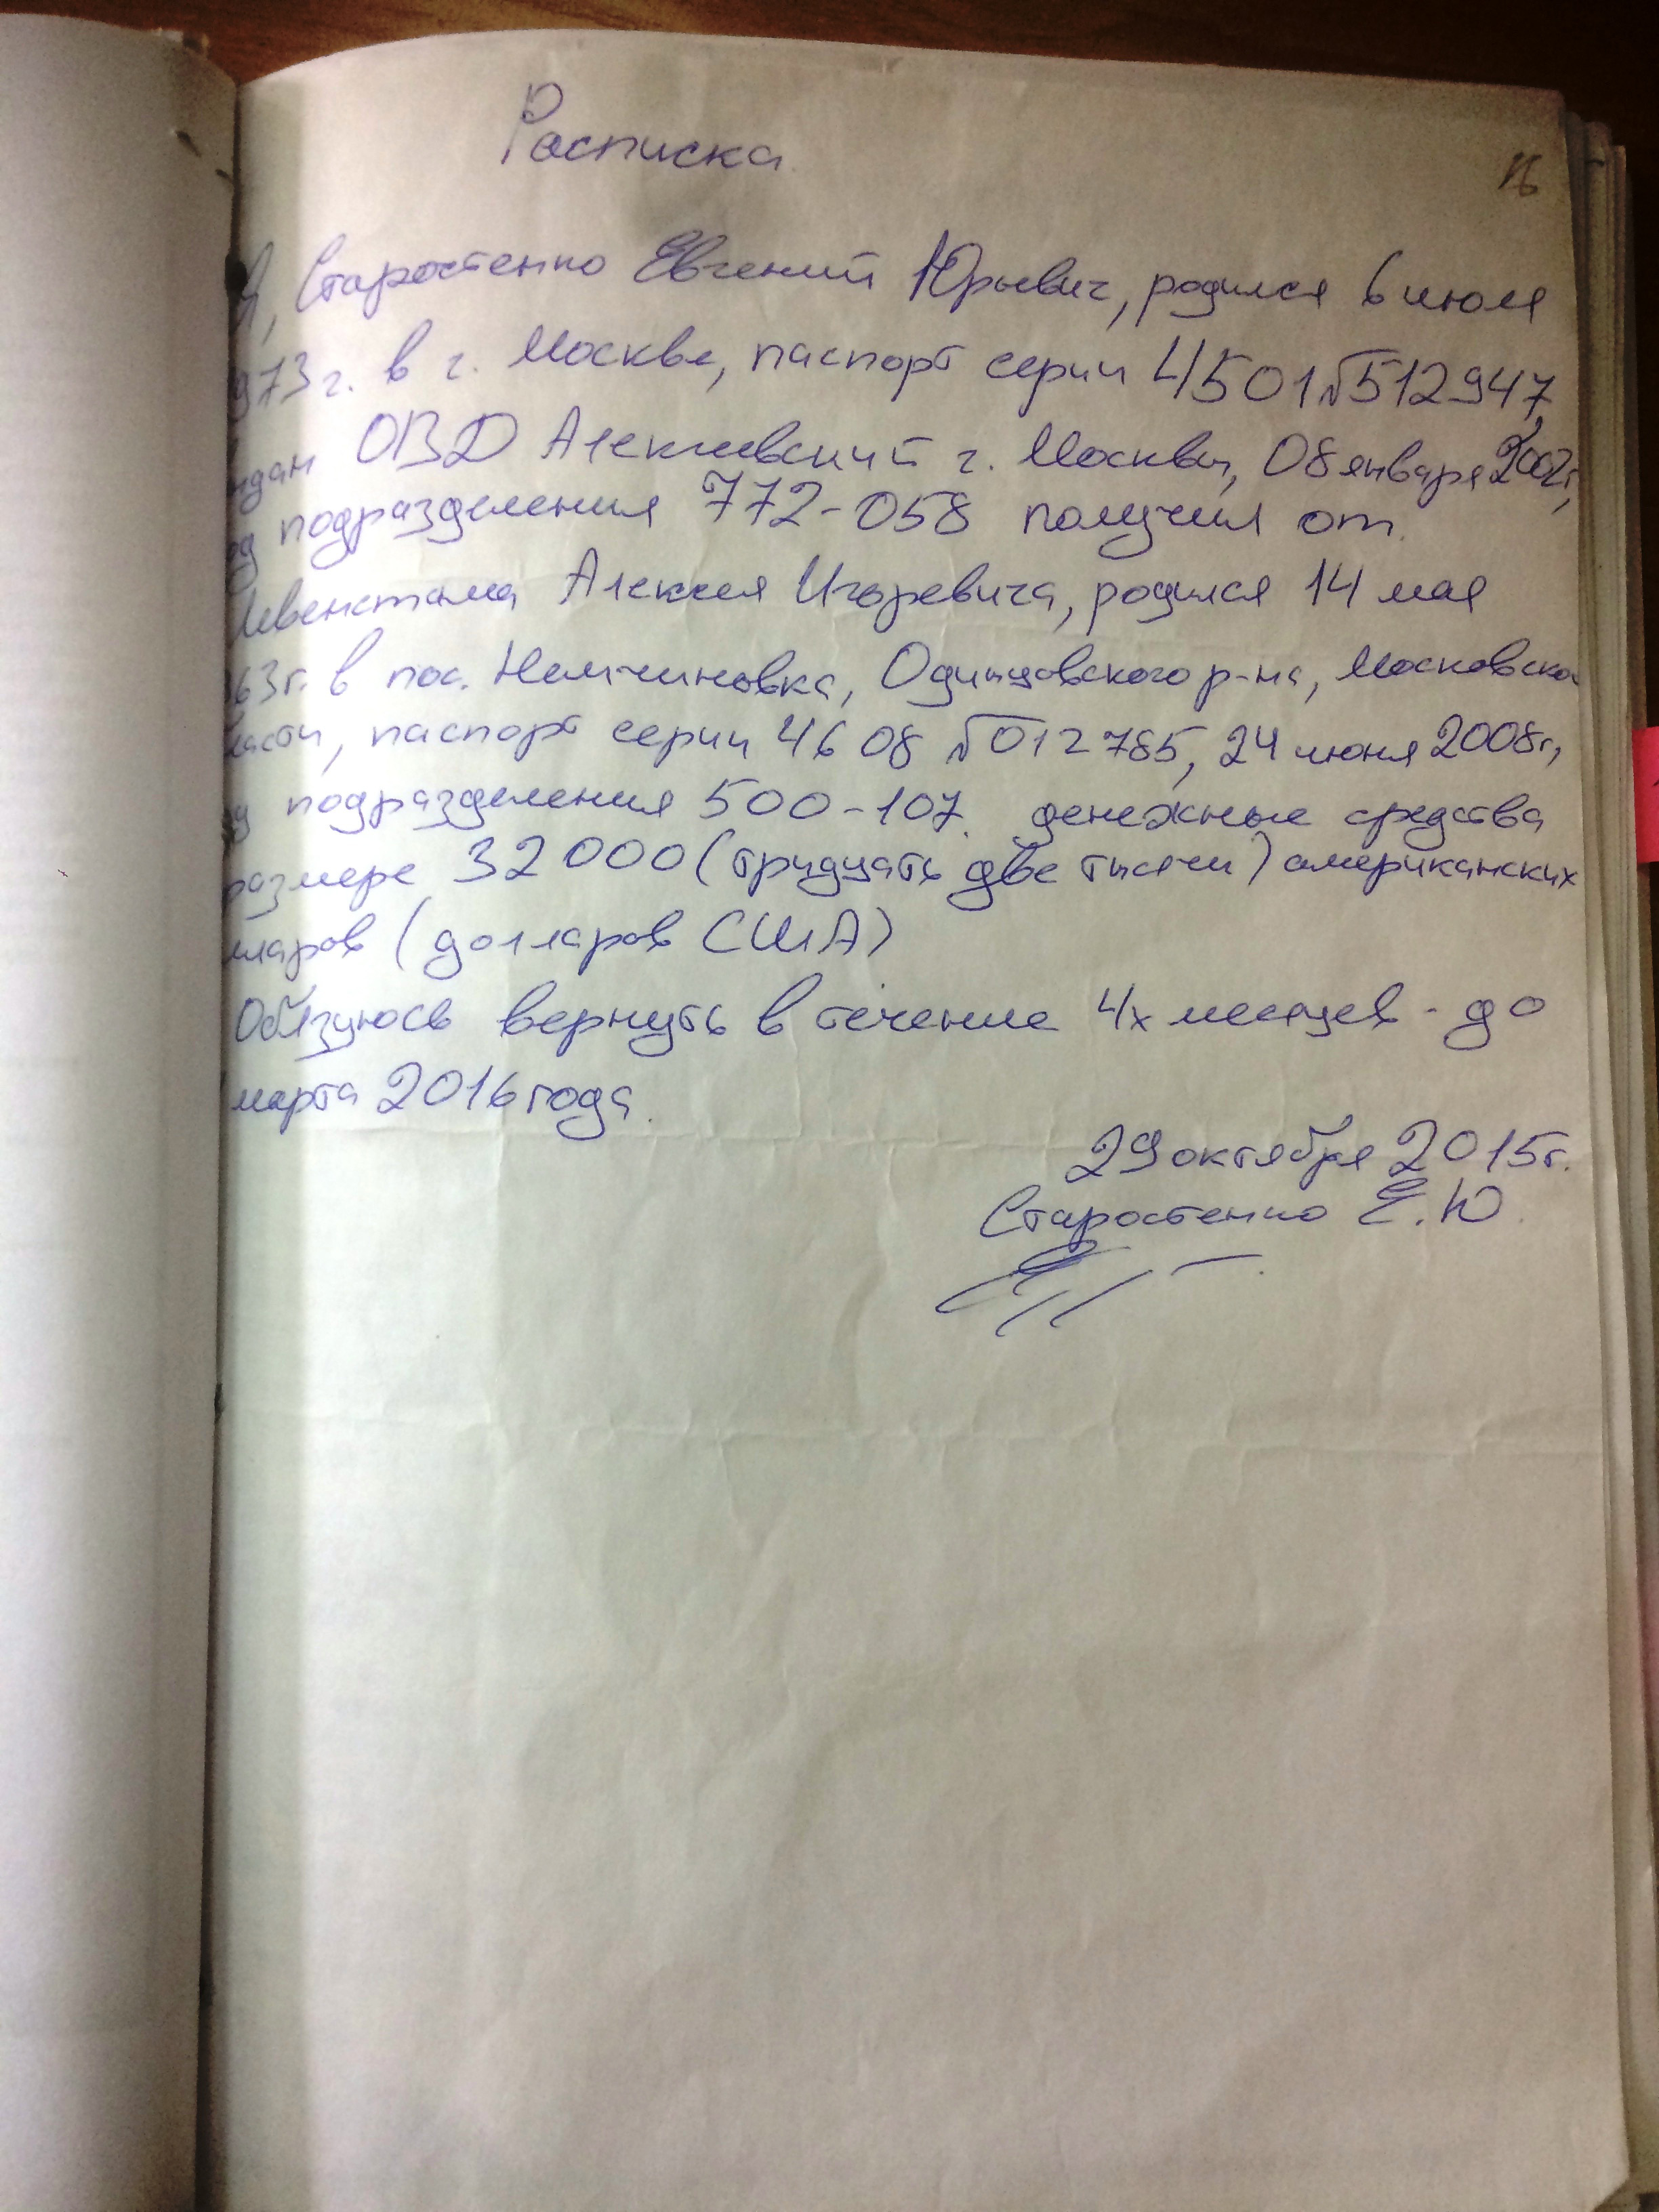 Расписка
16
Я, Старостенко Евгений Юрьевич, родился 6 июля
973 г. в г. Москве, паспорт серии 4501 №512947,
ыдан ОВД Алексеевский г. Москвы, 08 января 2002г,
од подразделения 772-058 получил от
Алексея Игоревича, родился 14 мая
63г. в пос. Немчиновка, Одинцовского р-на, Московско
ласти, паспорт серии 46 08 №012785, 24 июня 2008г,
д подразделения 500-107. денежные средства
размере 32 000 (тридцать две тысячи) американских
лларов (долларов США)
Обязуюсь вернуть в течение 4х месяцев - до
марта 2016 года.
29 октября 2015г.
Старостенко Е.Ю.